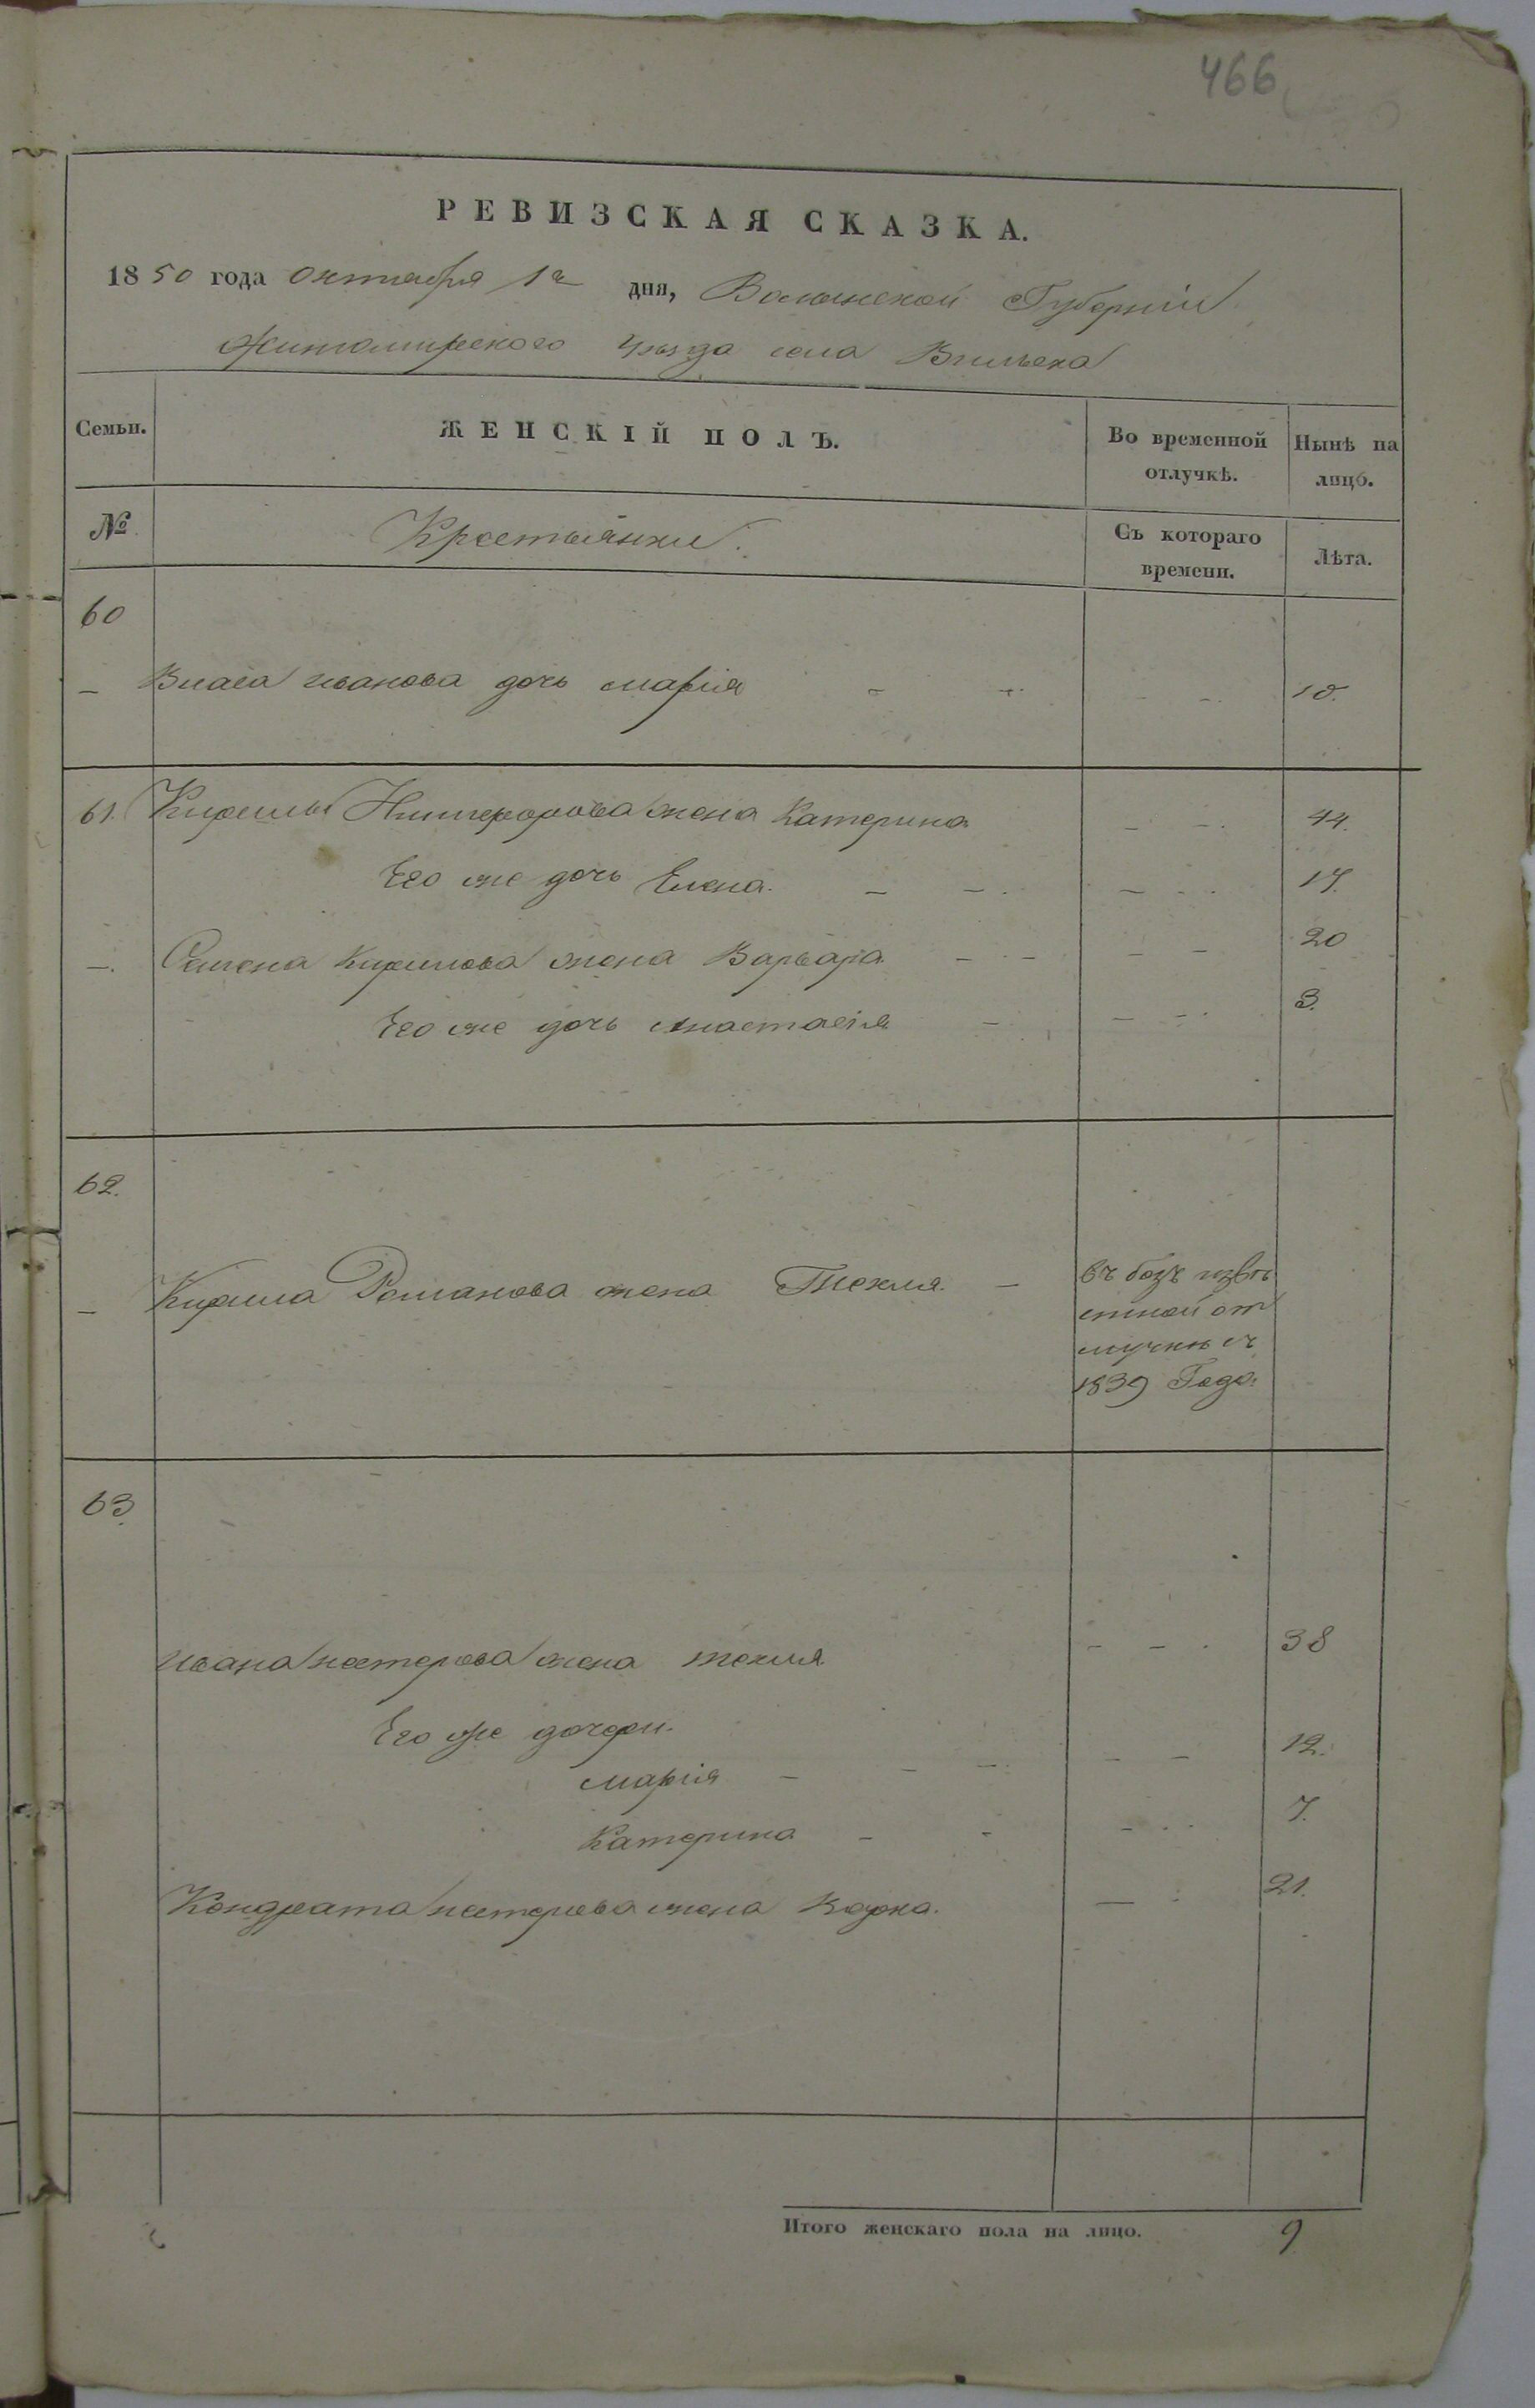 466
РЕВИЗСКАЯ СКАЗКА.
1850 года Октября 1го дня, Волынской Губерніи
Житомирского Уѣзда села Вильска
Семьи. ЖЕНСКІЙ ПОЛЪ. Во временной отлучкѣ. Нынѣ на лицо.
№ Крестьянки. Съ котораго времени. Лѣта.
60
— Власа Иванова дочь Марія - - - - 10.
61. Кирилы Никифорова жена Катерина - - 44.
Его же дочь Елена. - - - - - 17.
—. Семена Кирилова жена Варвара - - - - - 20
Его же дочь Анастасія - - - - 3.
62.
— Кирила Романова жена Текля. —
въ безъ извѣ
стной от
лучкѣ съ
1839 Года.
63.
Ивана Нестерова жена Текля - - - 38
Его же дочери.
Марія - - - - - 12.
Катерина - - - - - 7.
Кондрата Нестерова жена - - 21.
Итого женскаго пола на лицо. 9